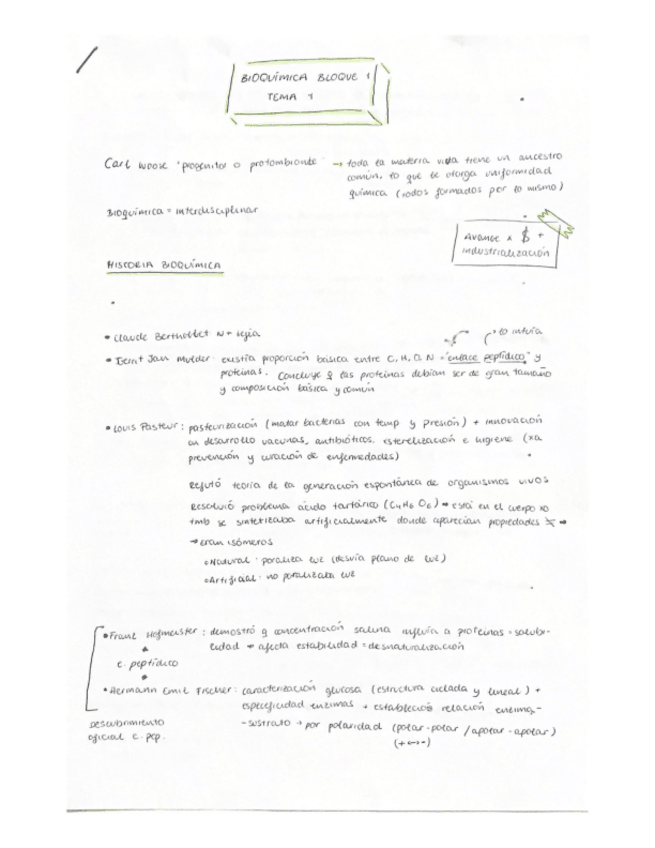 BIOQUÍMICA BLOQUE 1
TEMA 1
Carl Woose "progenitor o protombionte" → toda la materia viva tiene un ancestro
común, lo que le otorga uniformidad
química (todos formados por lo mismo)
Bioquímica = interdisciplinar
Avance x $ +
industrialización
HISTORIA BIOQUÍMICA
• Claude Berthollet N + lejía
→ lo intuía
• Gerrit Jan Mulder: existía proporción básica entre C, H, O, N → "enlace peptídico" y
proteínas. Concluye q las proteínas debían ser de gran tamaño
y composición básica y común
• Louis Pasteur: pasteurización (matar bacterias con temp y presión) + innovación
en desarrollo vacunas, antibióticos, esterelización e higiene (xa
prevención y curación de enfermedades)
Refutó teoría de la generación espontánea de organismos vivos
Resolvió problema ácido tartárico (C4H6O6) → está en el cuerpo xo
tmb se sintetizaba artificialmente donde aparecían propiedades ≠ →
→ eran isómeros
• Natural: poraliza luz (desvía plano de luz)
• Artificial: no poralizaba luz
• Franz Hofmeister: demostró q concentración salina influía a proteínas = solubi-
lidad → afecta estabilidad = desnaturalización
e. peptídico
• Hermann Emil Fischer: caracterización glucosa (estructura ciclada y lineal) +
especificidad enzimas + estableció relación enzima-
-sustrato → por polaridad (polar-polar / apolar-apolar)
(+ ↔ -)
Descubrimiento
oficial e. pep.